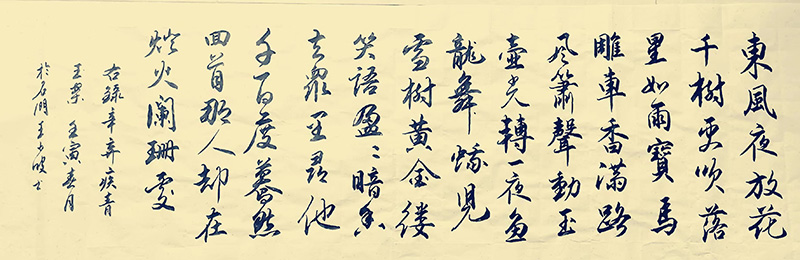 東風夜放花
千樹更吹落
星如爾寶馬
雕車香滿路
凤簫聲動玉
壺光轉一夜魚
龍舞蛾兒
雪樹黃金縷
笑語盈〻暗香
去衆里尋他
千百度驀然
回首那人却在
燈火瀾珊處
右錄辛弃疾青
玉案 壬寅春月
於石門王少波